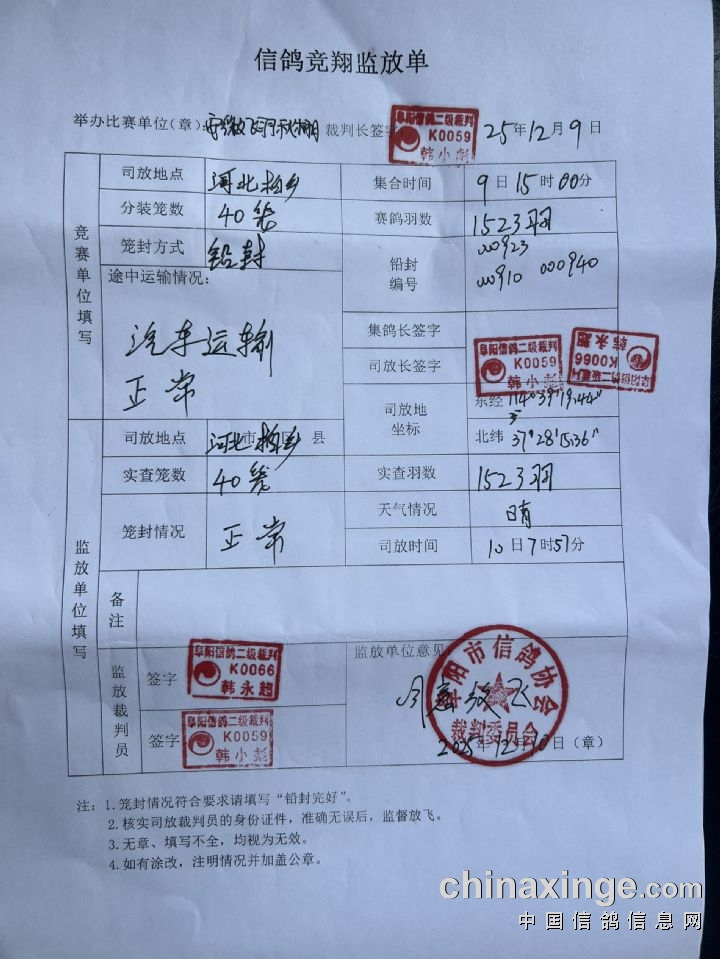 信鸽竞翔监放单
举办比赛单位(章): 裁判长签字: 25年12月9日
阜阳信鸽二级裁判
K0059
韩小彪
竞赛单位填写
司放地点 河北柏乡 集合时间 9日15时00分
分装笼数 40笼 赛鸽羽数 1523羽
笼封方式 铅封 铅封编号 000923
000910 000940
途中运输情况:
汽车运输
正常
集鸽长签字
司放长签字
阜阳信鸽二级裁判
K0059
韩小彪
阜阳信鸽二级裁判
K0066
韩永超
司放地坐标 东经 114°39′19.44″
北纬 37°28′15.36″
监放单位填写
司放地点 河北市柏乡县 实查羽数 1523羽
实查笼数 40笼
天气情况 晴
笼封情况 正常 司放时间 10日7时57分
备注
监放裁判员
签字 阜阳信鸽二级裁判
K0066
韩永超
签字 阜阳信鸽二级裁判
K0059
韩小彪
监放单位意见:
同意放飞
阜阳市信鸽协会
裁判委员会
2025年12月10日(章)
注: 1.笼封情况符合要求请填写“铅封完好”。
2.核实司放裁判员的身份证件,准确无误后,监督放飞。
3.无章、填写不全,均视为无效。
4.如有涂改,注明情况并加盖公章。
chinaxinge.com
中国信鸽信息网